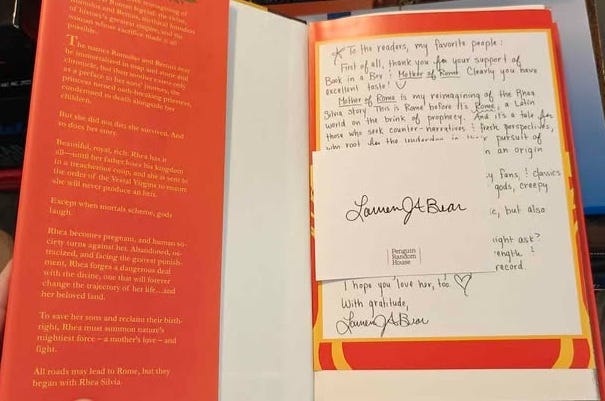 of history's greatest empire, and the
woman whose sacrifice made it all
possible.
The names Romulus and Remus may
be immortalized in map and stone and
chronicle, but their mother exists only
as a preface to her sons' journey, the
princess turned oath-breaking priestess,
condemned to death alongside her
children.
But she did not die; she survived. And
so does her story.
Beautiful, royal, rich: Rhea has it
all—until her father loses his kingdom
in a treacherous coup, and she is sent to
the order of the Vestal Virgins to ensure
she will never produce an heir.
Except when mortals scheme, gods
laugh.
Rhea becomes pregnant, and human so-
ciety turns against her. Abandoned, os-
tracized, and facing the gravest punish-
ment, Rhea forges a dangerous deal
with the divine, one that will forever
change the trajectory of her life...and
her beloved land.
To save her sons and reclaim their birth-
right, Rhea must summon nature's
mightiest force – a mother's love – and
fight.
All roads may lead to Rome, but they
began with Rhea Silvia.
To the readers, my favorite people:
First of all, thank you for your support of
Book in a Box & Mother of Rome. Clearly you have
excellent taste!
Mother of Rome is my reimagining of the Rhea
Silvia story. This is Rome before it's Rome, a Latin
world on the brink of prophecy. And it's a tale for
those who seek counter-narratives & fresh perspectives,
who root for the underdog in their pursuit of
n an origin
y fans, & classics
gods, creepy
ic, but also
ight ask?
ength &
record.
I hope you love her, too. ♡
With gratitude,
Lauren J. A. Bear
Lauren J. A. Bear
Penguin
Random
House